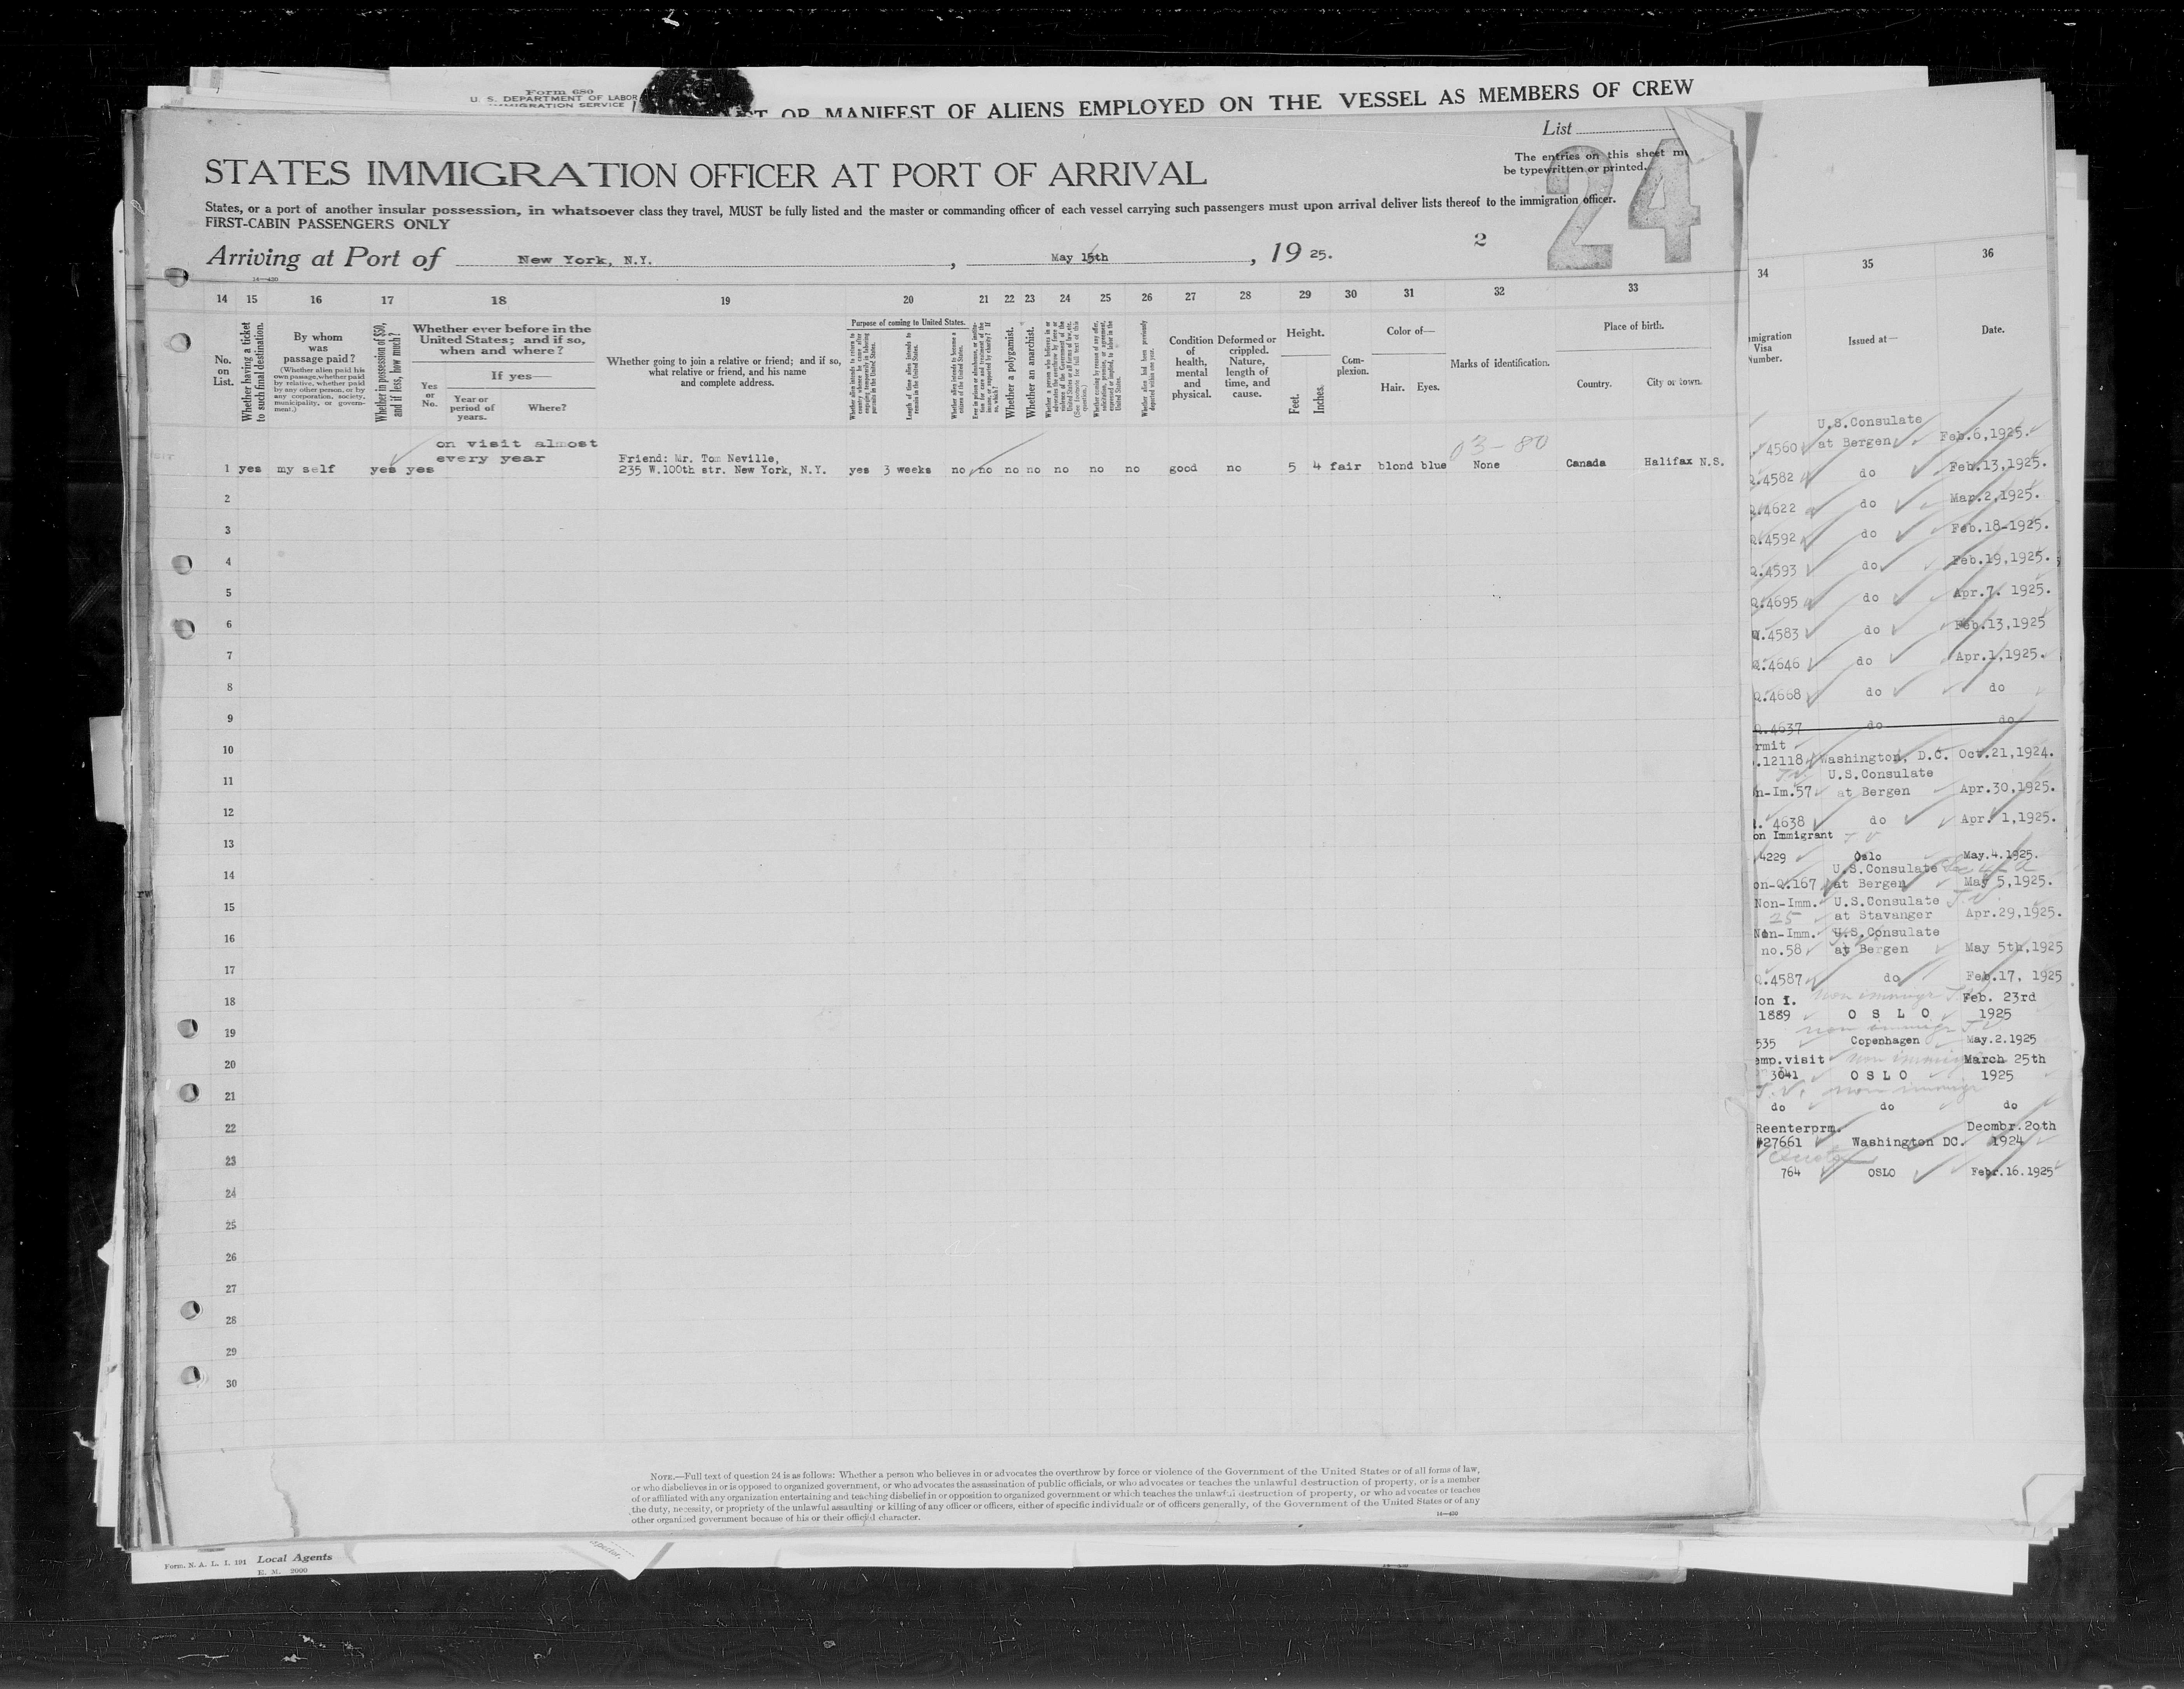 Form 680
U. S. DEPARTMENT OF LABOR
IMMIGRATION SERVICE
OR MANIFEST OF ALIENS EMPLOYED ON THE VESSEL AS MEMBERS OF CREW
List
24
STATES IMMIGRATION OFFICER AT PORT OF ARRIVAL
The entries on this sheet
be typewritten or printed.
States, or a port of another insular possession, in whatsoever class they travel, MUST be fully listed and the master or commanding officer of each vessel carrying such passengers must upon arrival deliver lists thereof to the immigration officer.
FIRST-CABIN PASSENGERS ONLY
Arriving at Port of New York, N.Y., May 15th, 19 25.
2
14—430
14 15 16 17 18 19 20 21 22 23 24 25 26 27 28 29 30 31 32 33
No. on List.
Whether having a ticket to such final destination.
By whom was passage paid?
(Whether alien paid his own passage, whether paid by relative, whether paid by any other person, or by any corporation, society, municipality, or government.)
Whether in possession of $50, and if less, how much?
Whether ever before in the United States; and if so, when and where?
If yes—
Yes or No.
Year or period of years.
Where?
Whether going to join a relative or friend; and if so, what relative or friend, and his name and complete address.
Purpose of coming to United States.
Whether alien intends to return to country whence he came after engaging temporarily in laboring pursuits in the United States.
Length of time alien intends to remain in the United States.
Whether alien intends to become a citizen of the United States.
Ever in prison or almshouse, or institution for care and treatment of the insane, or supported by charity? If so, which?
Whether a polygamist.
Whether an anarchist.
Whether a person who believes in or advocates the overthrow by force or violence of the Government of the United States or all forms of law, etc. (See footnote for full text of this question.)
Whether coming by reason of any offer, solicitation, promise, or agreement, expressed or implied, to labor in the United States.
Whether alien had been previously deported within one year.
Condition of health, mental and physical.
Deformed or crippled. Nature, length of time, and cause.
Height.
Feet.
Inches.
Complexion.
Color of—
Hair. Eyes.
Marks of identification.
Place of birth.
Country.
City or town.
03-80
on visit almost
every year
Friend: Mr. Tom Neville,
1 yes my self yes yes 235 W.100th str. New York, N.Y. yes 3 weeks no no no no no no no good no 5 4 fair blond blue None Canada Halifax N.S.
2
3
4
5
6
7
8
9
10
11
12
13
14
15
16
17
18
19
20
21
22
23
24
25
26
27
28
29
30
NOTE.—Full text of question 24 is as follows: Whether a person who believes in or advocates the overthrow by force or violence of the Government of the United States or of all forms of law,
or who disbelieves in or is opposed to organized government, or who advocates the assassination of public officials, or who advocates or teaches the unlawful destruction of property, or is a member
of or affiliated with any organization entertaining and teaching disbelief in or opposition to organized government or which teaches the unlawful destruction of property, or who advocates or teaches
the duty, necessity, or propriety of the unlawful assaulting or killing of any officer or officers, either of specific individuals or of officers generally, of the Government of the United States or of any
other organized government because of his or their official character.
14—430
34 35 36
Visa
Number.
Issued at—
Date.
U.S.Consulate
4560 at Bergen Feb.6,1925.
4582 do Feb.13,1925.
4622 do Mar.2,1925.
4592 do Feb.18-1925.
4593 do Feb.19,1925.
4695 do Apr.7. 1925.
4583 do Feb.13,1925
4646 do Apr.1,1925.
4668 do do
4637 do do
12118 Washington, D.C. Oct.21,1924.
U.S.Consulate
n-Im.57 at Bergen Apr.30,1925.
4638 do Apr. 1,1925.
on Immigrant T V
4229 Oslo May.4.1925.
U.S.Consulate
on-Q.167 at Bergen May 5,1925.
Non-Imm. U.S.Consulate T.V.
25 at Stavanger Apr.29,1925.
Non-Imm. U.S.Consulate
no.58 at Bergen May 5th,1925
4587 do Feb.17, 1925
on I. non immigr T.V Feb. 23rd
1889 O S L O 1925
non immigr T.V
535 Copenhagen May.2.1925
emp.visit non immigr March 25th
3041 O S L O 1925
T.V. non immigr
do do do
Reenterprm. Decmbr.20th
#27661 Washington DC. 1924
Quota
764 OSLO Febr.16.1925
Form. N. A. L. I. 191 Local Agents
E. M. 2000